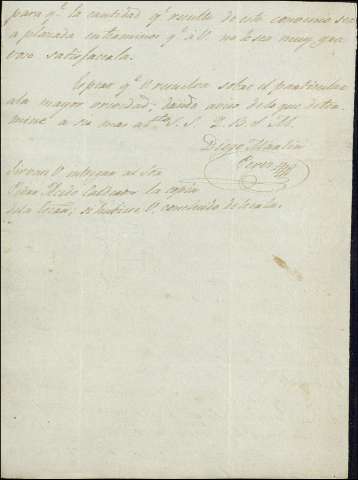 para q.e la cantidad q.e resulte de este convenio sea
aplazada en terminos q.e á V. no le sea muy gra
voso satisfacerla.
Espero q.e V. resuelva sobre el particular
a la mayor brevedad; dando aviso de lo que deter
mine a su mas at.to S. S. Q. B. S. M.
Diego Martin
Perez
Sirvase V. entregar al Sor
Pedro la copia
de la; si hubiere V. concluido de sacarla.